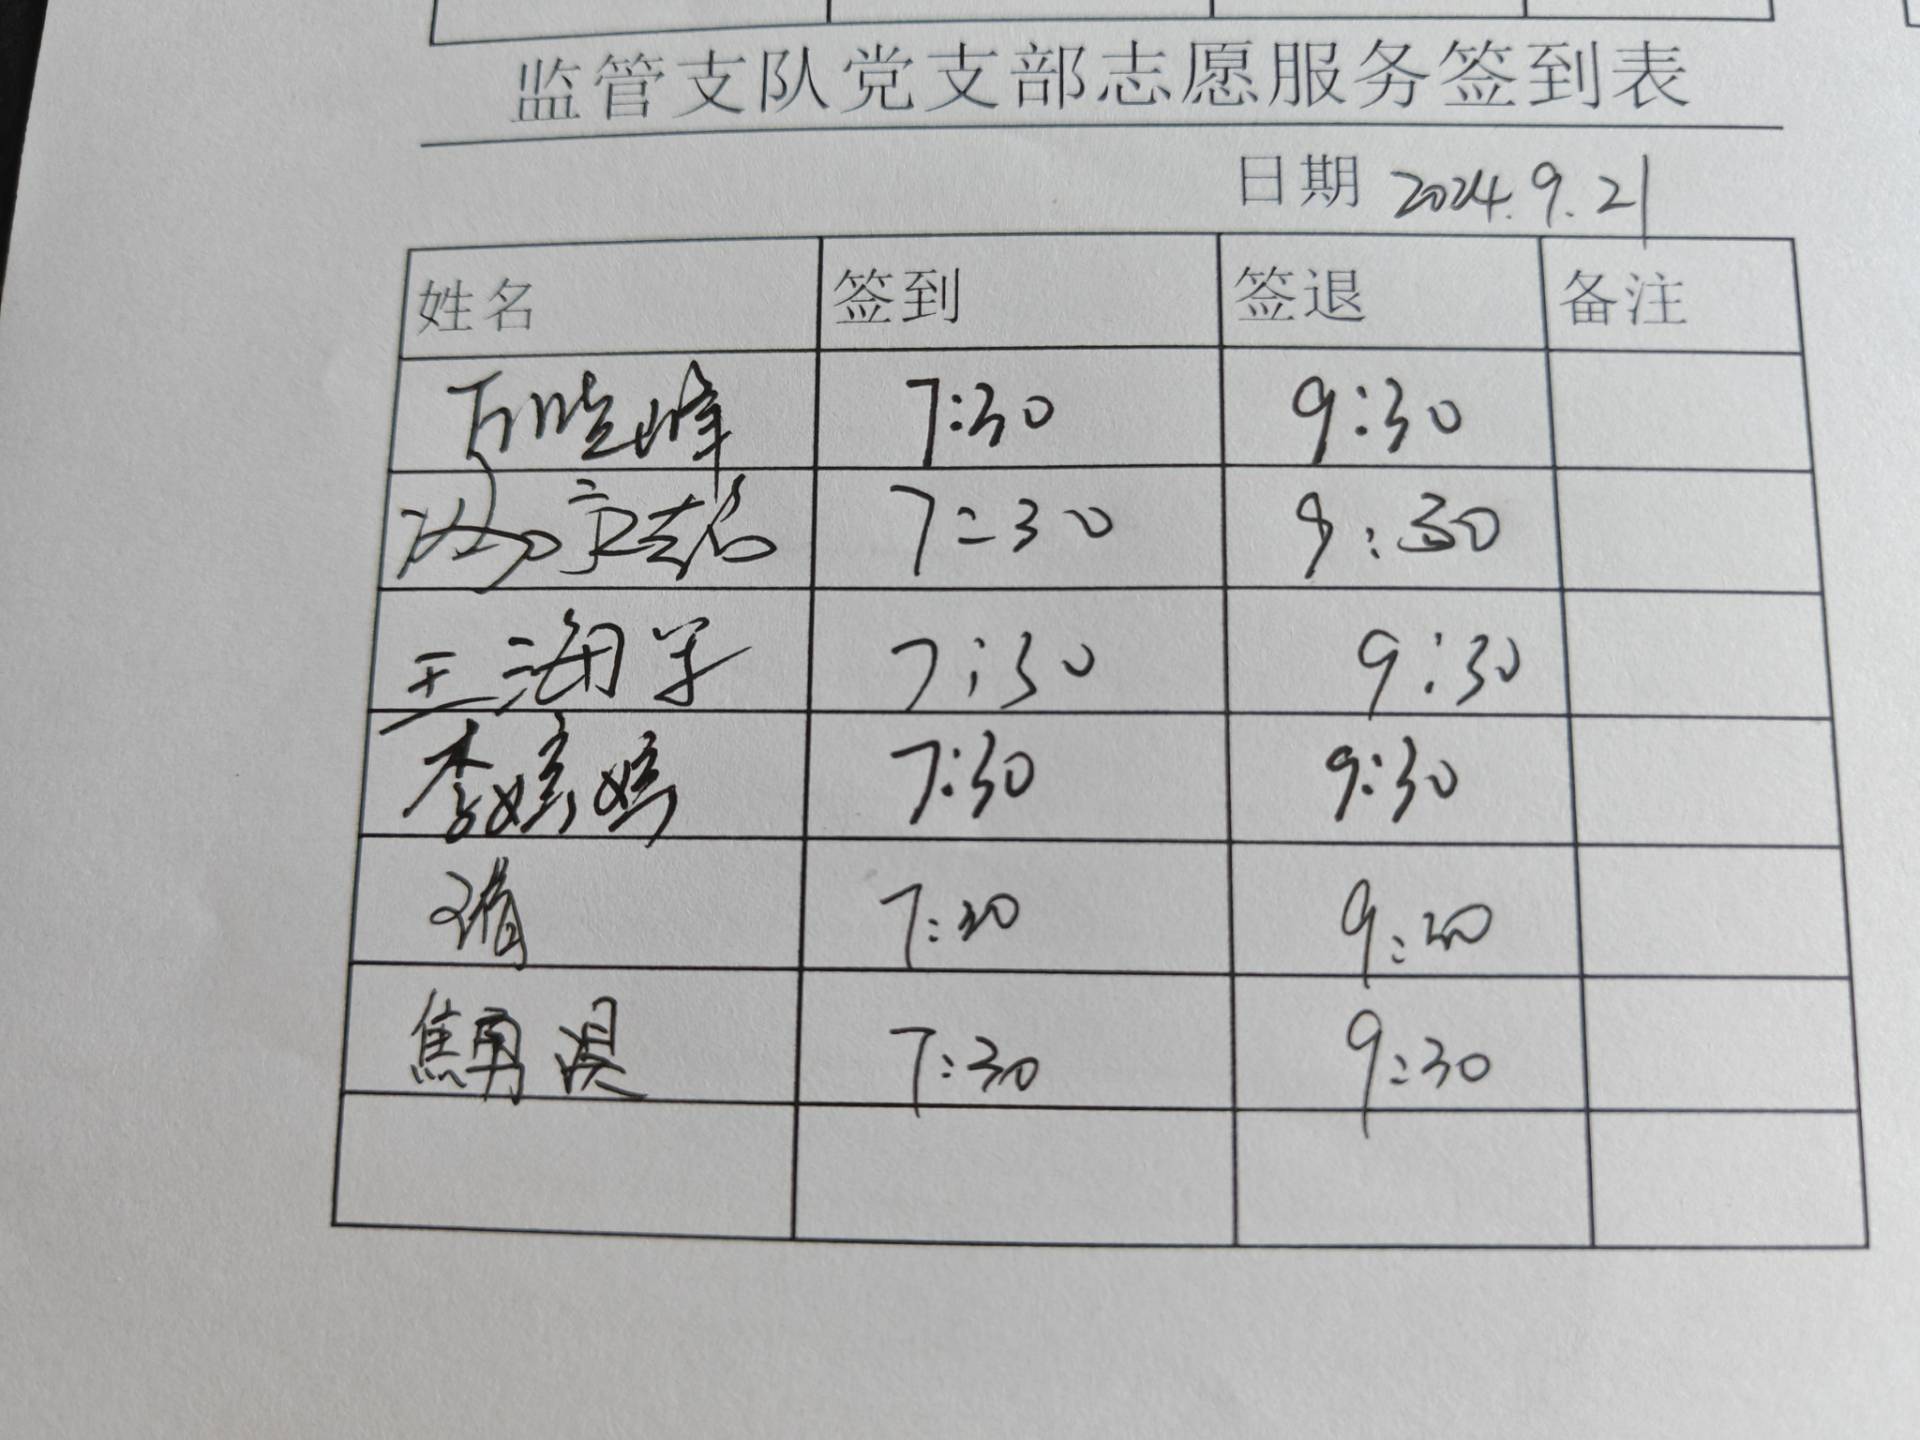 监管支队党支部志愿服务签到表
日期 2024.9.21
姓名 签到 签退 备注
万晓峰 7:30 9:30
7:30 9:30
王海军 7:30 9:30
李嫔嫔 7:30 9:30
7:30 9:30
焦勇 7:30 9:30